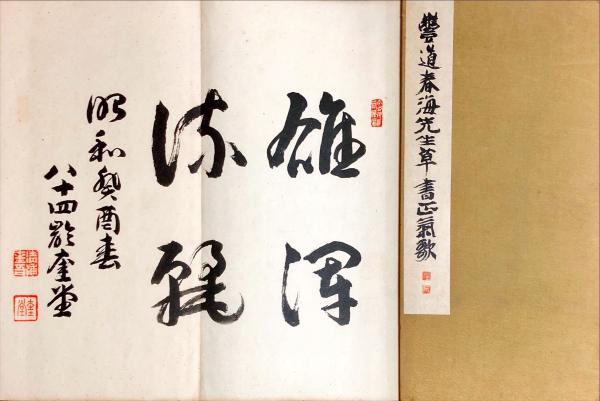 豐道春海先生草書正氣歌
雄渾
流麗
昭和癸酉春
八十四齡奎堂
奎堂